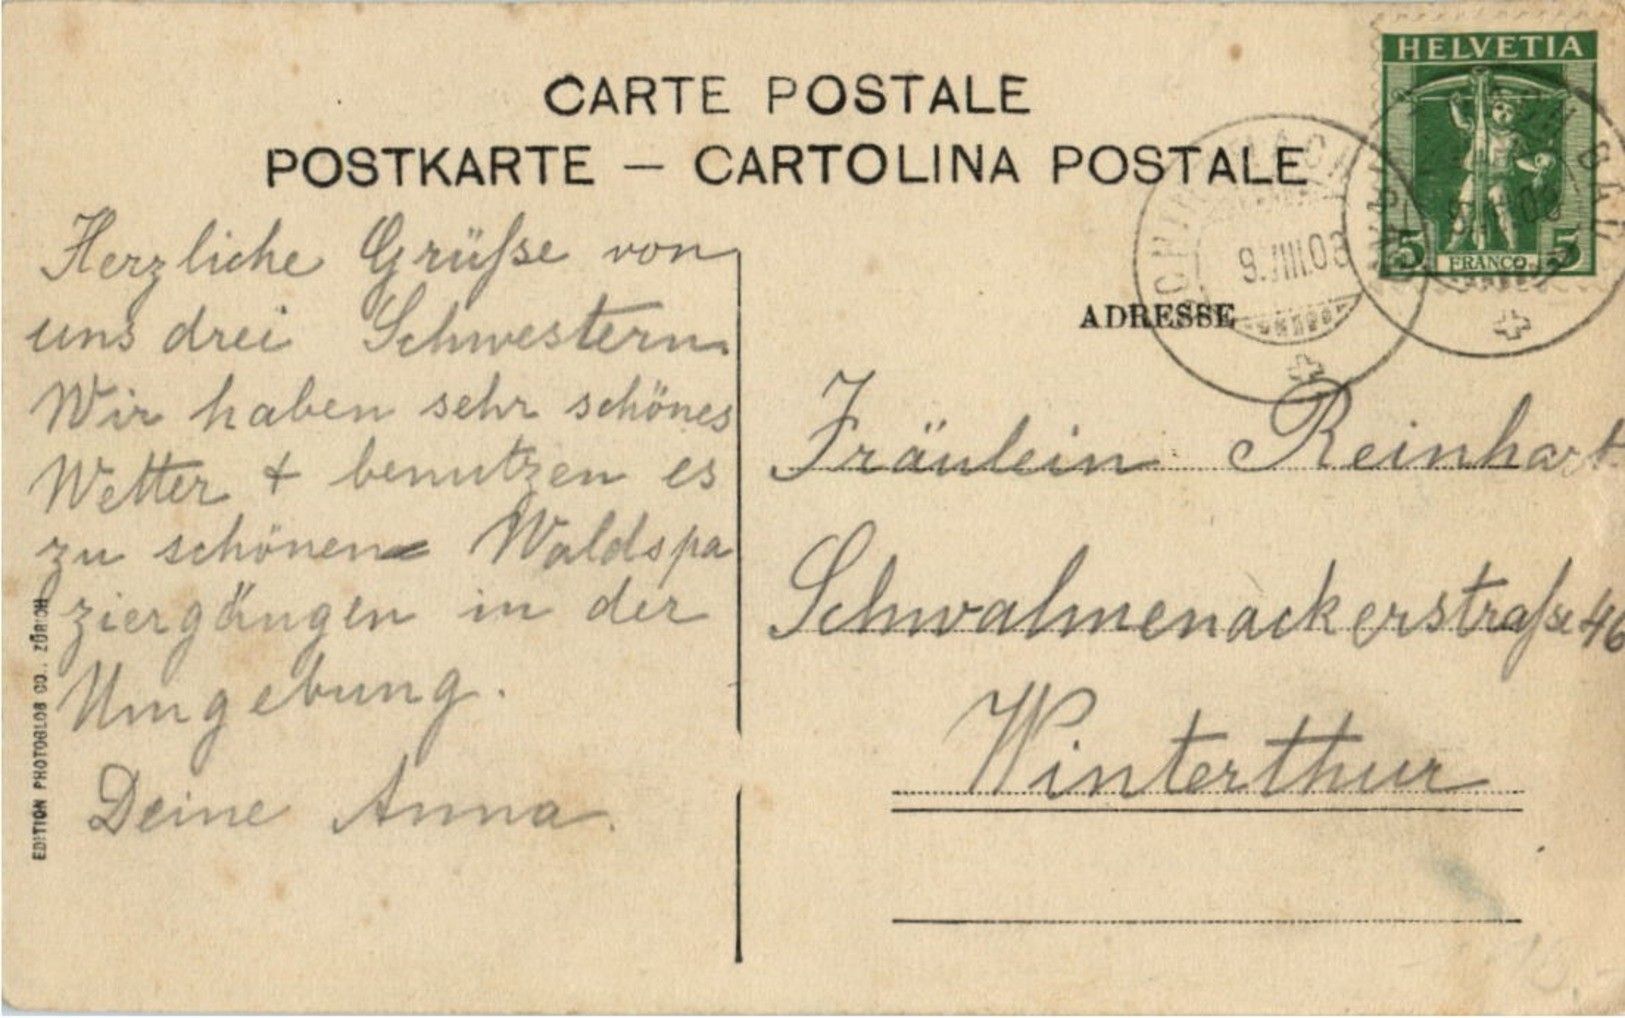 CARTE POSTALE
POSTKARTE — CARTOLINA POSTALE
HELVETIA
5 FRANCO 5
9.VIII.08
ADRESSE
Herzliche Grüße von
uns drei Schwestern.
Wir haben sehr schönes
Wetter + benutzen es
zu schönen Waldspa
ziergängen in der
Umgebung.
Deine Anna.
Fräulein Reinhart
Schwalmenackerstraße 46
Winterthur
EDITION PHOTOGLOB CO., ZÜRICH